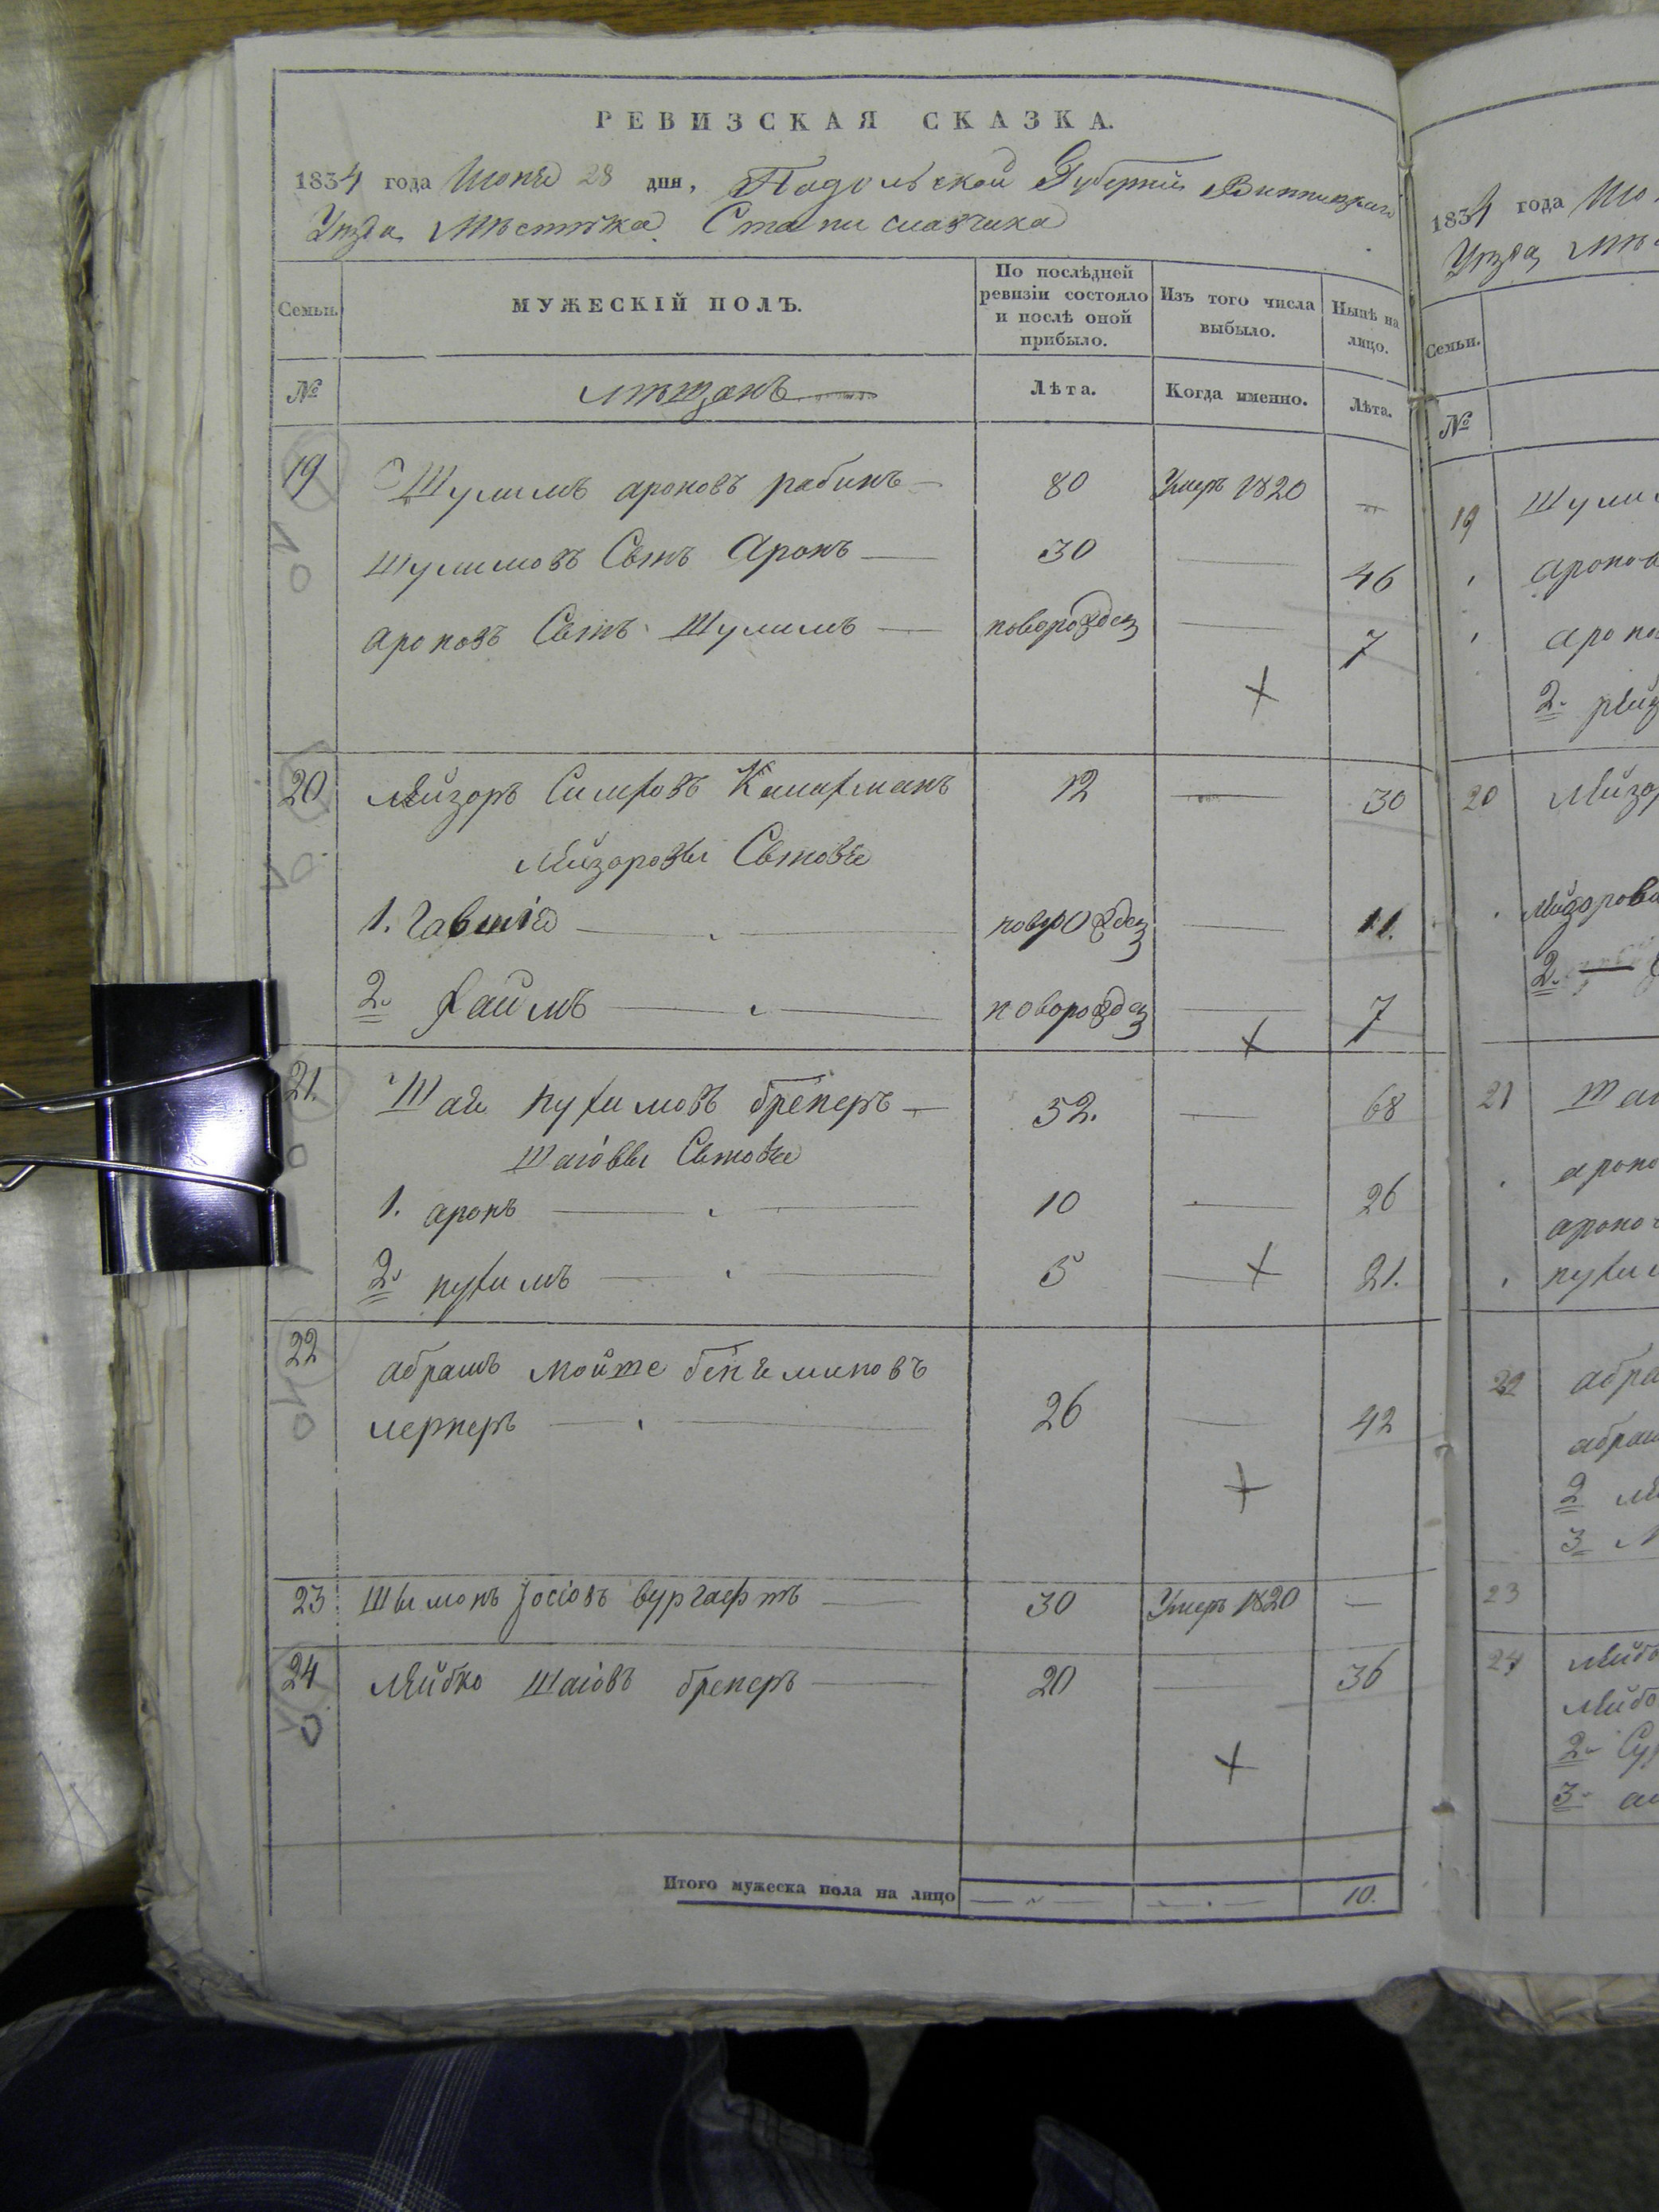 РЕВИЗСКАЯ СКАЗКА.
1834 года Июня 28 дня, Падольской Губерніи Винницкаго
Уезда Мѣстечка Станиславчика
Семьи.
МУЖЕСКІЙ ПОЛЪ.
По послѣдней ревизіи состояло и послѣ оной прибыло.
Изъ того числа выбыло.
Нынѣ на лицо.
№
мѣщанъ
Лѣта.
Когда именно.
Лѣта.
19 Шулимъ ароновъ рабинъ 80 Умеръ 1820 —
Шулимовъ Сынъ Аронъ 30 — 46
ароновъ Сынъ Шулимъ новорожден — 7
20 Лейзоръ Симховъ 12 — 30
Лейзоровы Сыновья
1. новорожден — 11.
2. Хаимъ новорожден — 7
21. Шая нухимовъ бренеръ 52. — 68
Шаіовы Сыновья
1. аронъ 10 — 26
2. нухимъ 5 — 21.
22 абрамъ мойше бенъяминовъ
лернеръ 26 — 42
23 Шимонъ Јосіовъ вургафтъ 30 Умеръ 1820 —
24 Лейбко Шаіовъ бренеръ 20 — 36
Итого мужеска пола на лицо — — 10.
1834 года Ию
Уезда
Семьи.
№
19 Шули
аронов
арон
2.
20 Лейзо
Лейзоров
2.
21 Ша
ароно
ароно
нухим
22 абра
абрам
2
3
23
24 Лейб
Лейб
2.
3.